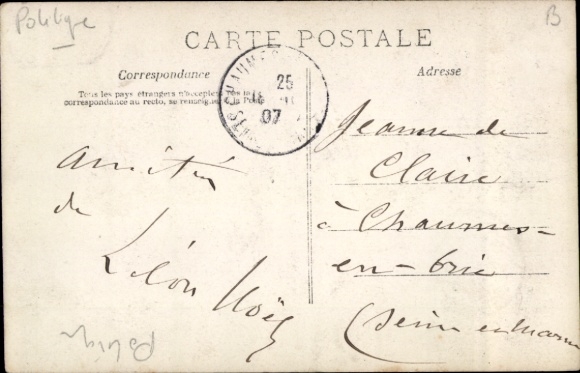 B
CARTE POSTALE
Correspondance
Adresse
Tous les pays étrangers n'acceptent pas la
correspondance au recto, se renseigner à la Poste
25
07
amitiés
de
Léon Noël
Jeanne de
Claire
à Chaumes-
en-brie
(Seine et Marne